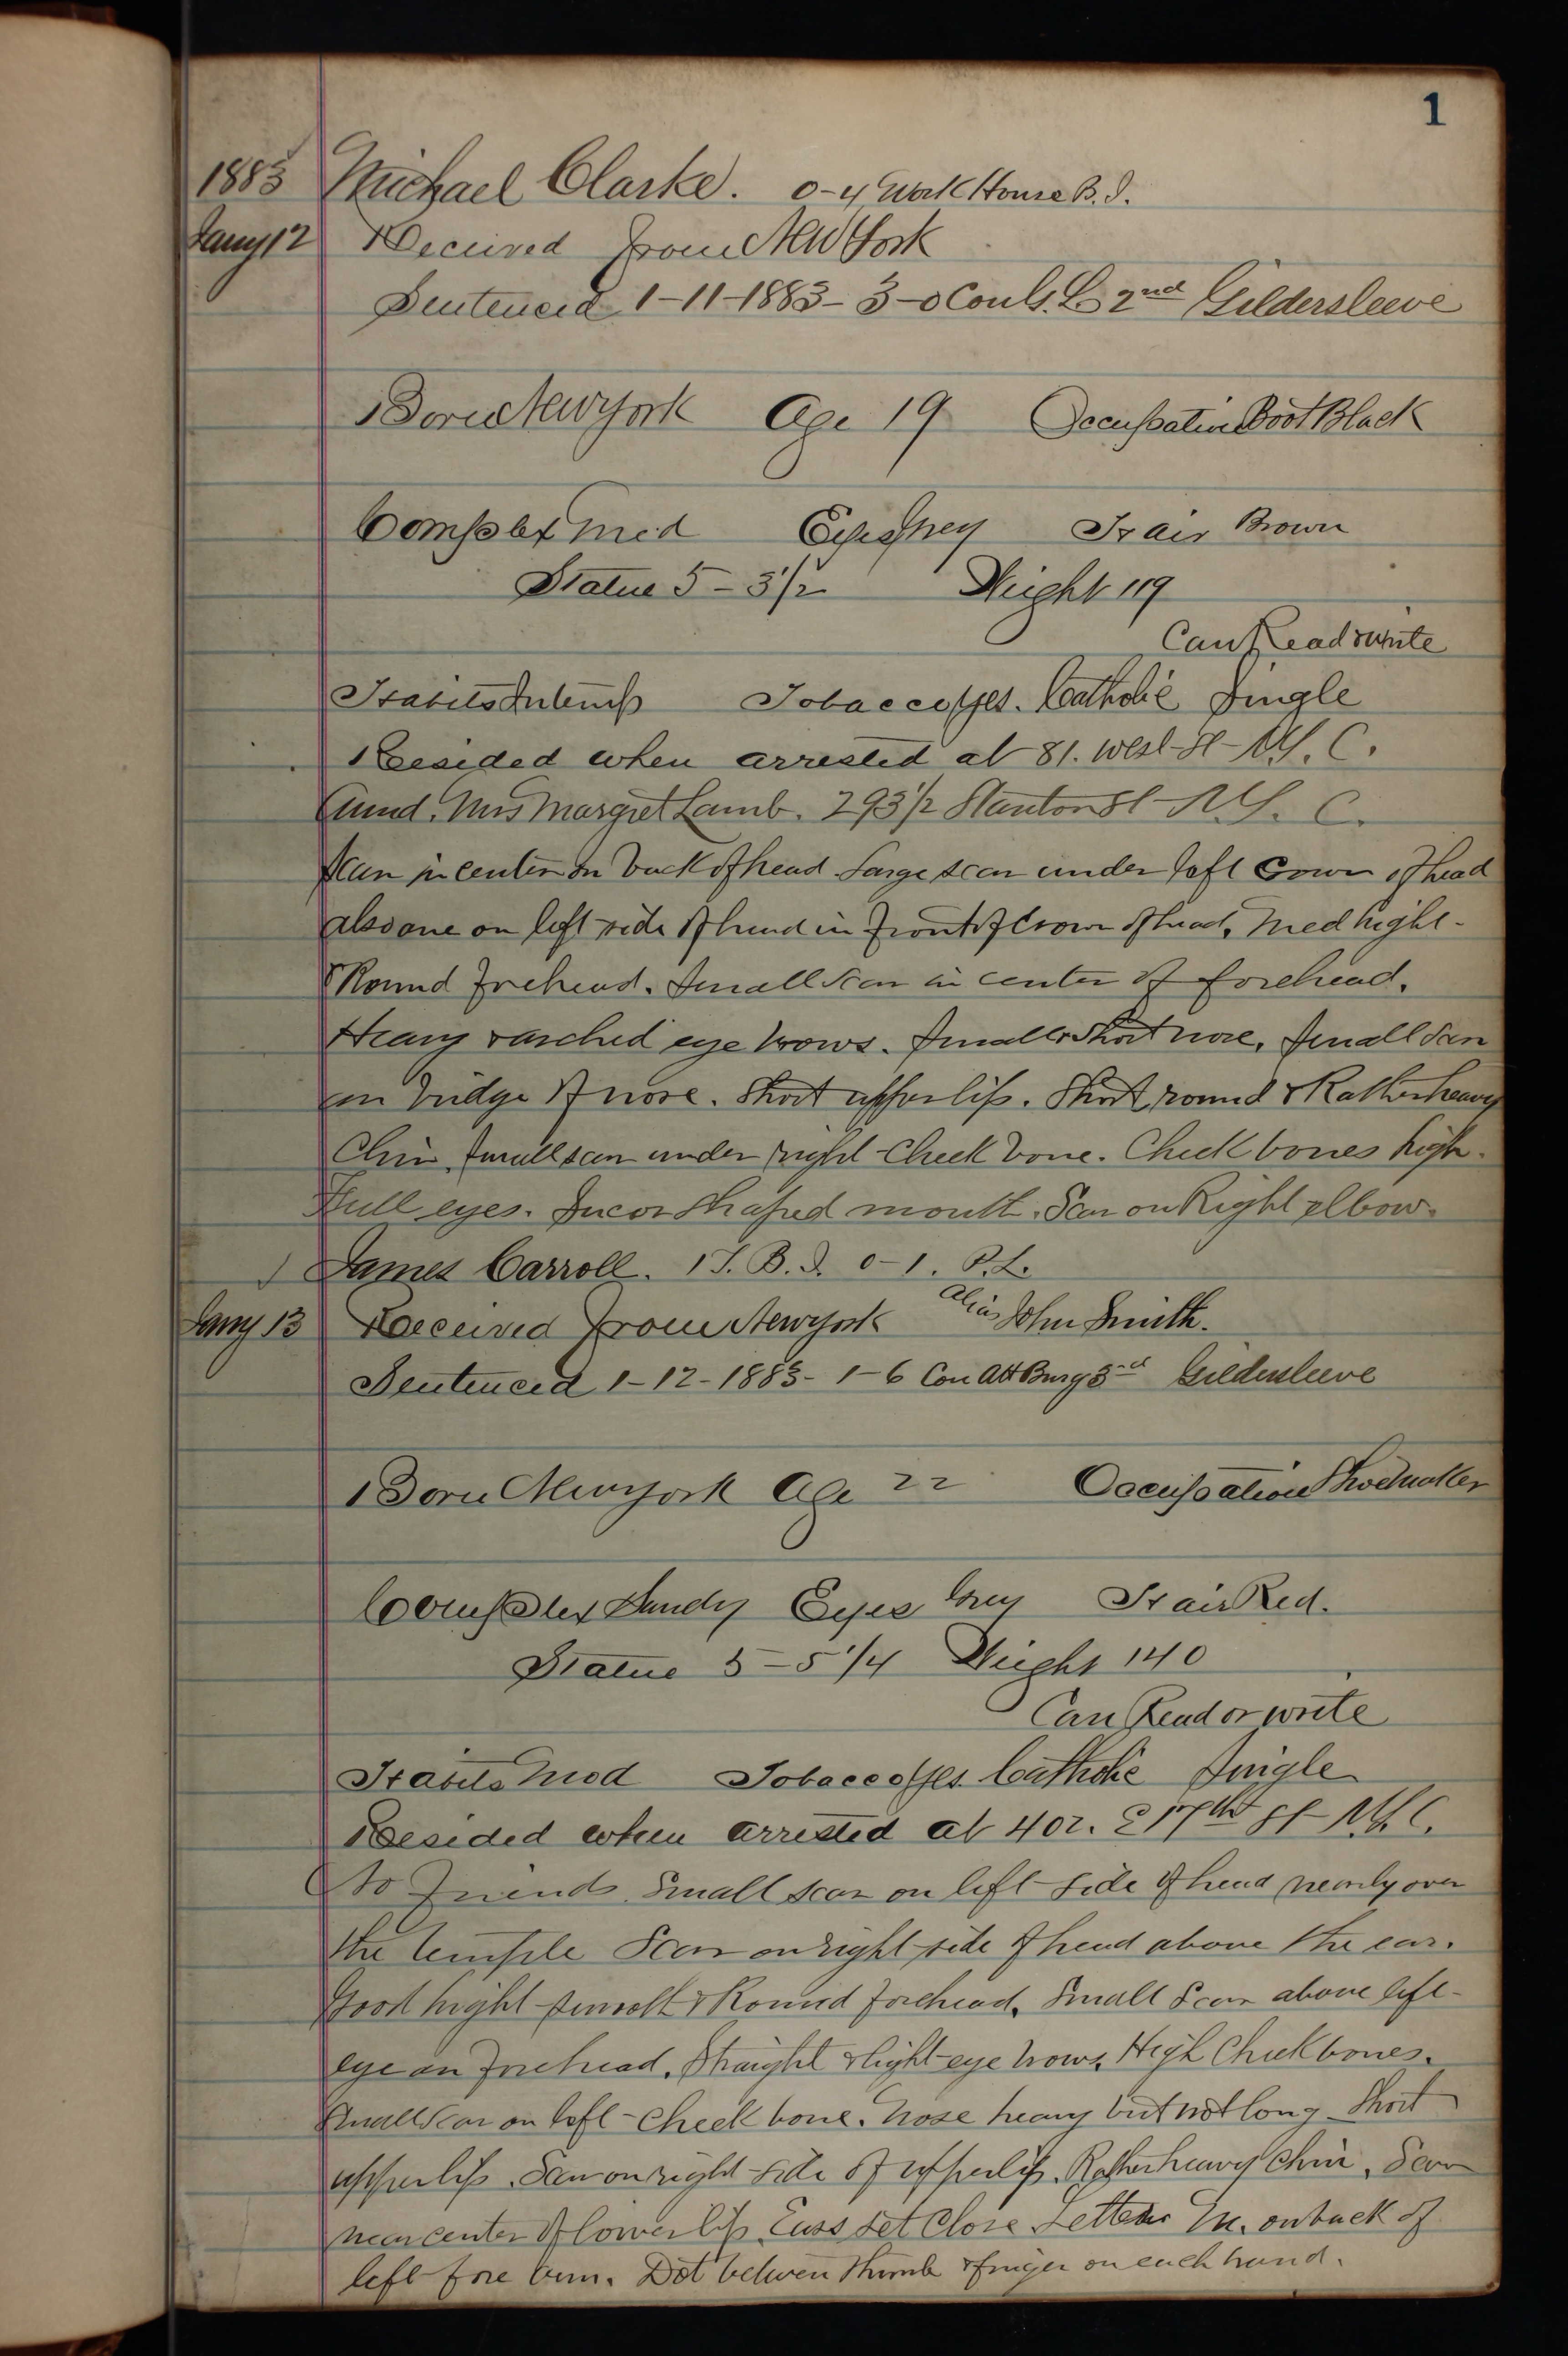 1
1883 Michael Clarke. 0-4 Work House B.I.
Jany 12 Received from New York
Sentenced 1-11-1883- 3-0 Con G. L. 2nd Gildersleeve
Born New York Age 19 Occupation Boot Black
Complex Med Eyes Grey Hair Brown
Statue 5-3 1/2 Weight 119
Can Read & write
Habits Intemp Tobacco Yes. Catholic Single
Resided when arrested at 81. West St- N.Y. C.
Aund. Mrs Margret Lamb. 293 1/2 Stanton St- N.Y. C.
Scar in center on back of head Large scar under left Crown of head
also one on left side of head in front of Crown of head. Med hight-
& Round forehead. Small scar in center of forehead.
Heavy & arched eye brows. Small & Short nose. Small scar
on bridge of nose. Short upper lip. Short round & Rather heavy
Chin. Small scar under right Cheek bone. Cheek bones high.
Full eyes. shaped mouth. Scar on Right elbow.
James Carroll. 1 T. B. I. 0-1. P.L.
alias John Smith.
Jany 13 Received from New York
Sentenced 1-12-1883- 1-6 Con Att Burg 3rd Gildersleeve
Born New York Age 22 Occupation Shoemaker
Complex Sandy Eyes Grey Hair Red.
Statue 5-5 1/4 Weight 140
Can Read or write
Habits Mod Tobacco Yes. Catholic Single
Resided when arrested at 402. E 17th St- N.Y. C.
No Friends. Small scar on left side of head nearly over
the temple Scar on right side of head above the ear.
Good hight smooth & Round forehead. Small Scar above left-
eye on forehead. Straight & light eye brows. High Cheek bones.
Small scar on left- cheek bone. Nose heavy but not long- Short
upper lip. Scar on right side of upper lip. Rather heavy chin. Scar
near center of lower lip. Ears set Close Letter M. on back of
left fore arm. Dot between thumb & finger on each hand.